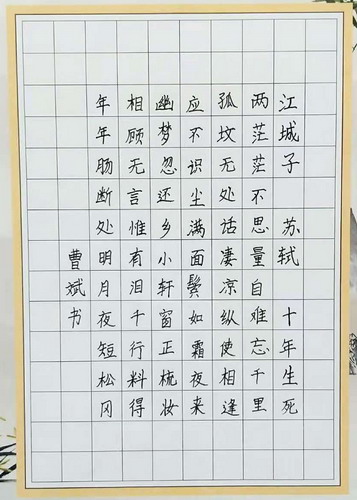 江城子 苏轼 十年生死
两茫茫不思量自难忘千里
孤坟无处话凄凉纵使相逢
应不识尘满面鬓如霜夜来
幽梦忽还乡小轩窗正梳妆
相顾无言惟有泪千行料得
年年肠断处明月夜短松冈
曹斌书